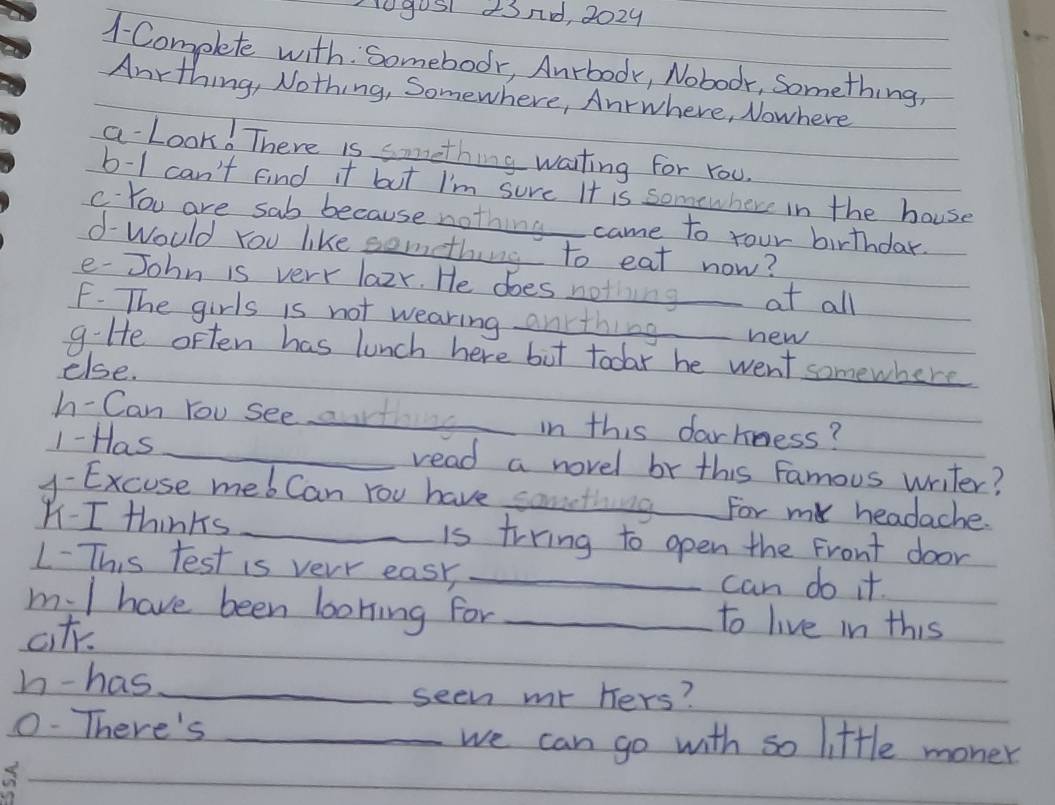 August 23rd, 2024
1-Complete with: Somebody, Anybody, Nobody, Something,
Anything, Nothing, Somewhere, Anywhere, Nowhere
a-Look! There is something waiting for you.
b-I can't find it but I'm sure It is somewhere in the house
c-You are sab because nothing came to your birthday.
d-Would you like something to eat now?
e-John is very lazy. He does nothing at all
F-The girls is not wearing anything new
g-He often has lunch here but today he went somewhere
else.
h-Can you see anything in this darkness?
i-Has ________ read a novel by this famous writer?
j-Excuse me! Can you have something for my headache.
K-I thinks ________ is trying to open the front door
L-This test is very easy, ________ can do it.
m-I have been looking for ________ to live in this
city.
n-has ________ seen my keys?
O-There's ________ we can go with so little money